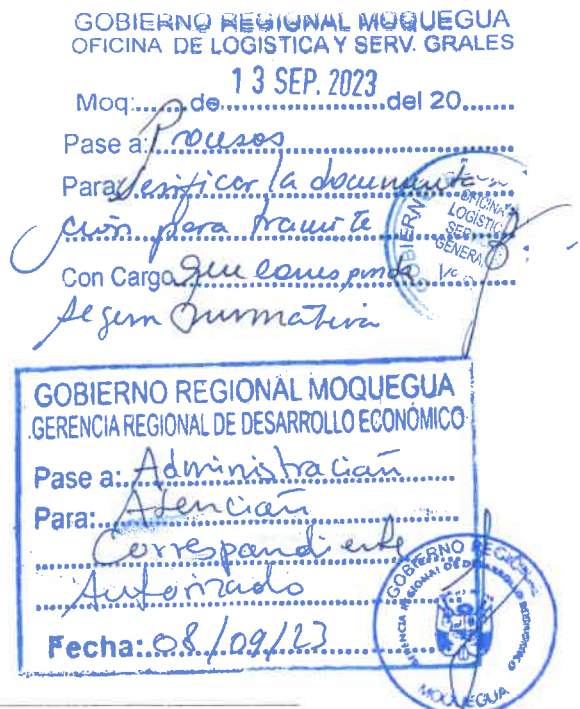 GOBIERNO REGIONAL MOQUEGUA
OFICINA DE LOGISTICA Y SERV. GRALES
13 SEP. 2023
Moq:.......de.....................del 20.......
Pase a: Procesos
Para: Verificar la documenta
ción para tramite
Con Cargo que corresponda
Según Normativa
GOBIERNO
OFICINA
LOGISTIC
SER
GENERA
GOBIERNO REGIONAL MOQUEGUA
GERENCIA REGIONAL DE DESARROLLO ECONÓMICO
Pase a: Administración
Para: Atención
Correspondiente
Autorizado
Fecha: 08/09/23
GOBIERNO REGIONAL
GERENCIA REGIONAL DE DESARROLLO
MOQUEGUA